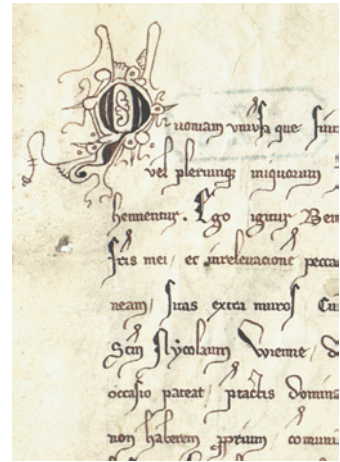 Quoniam univsa que sunt
vel plerumq; iniquorum
hennentur. Ego igitur Ben
fris mei, et in relevacione pecca
neam, sitas extra muros Cu
Scm Nycolaum Wienne, d
occasio pateat, ptactis domina
non haberem pprium, comuni